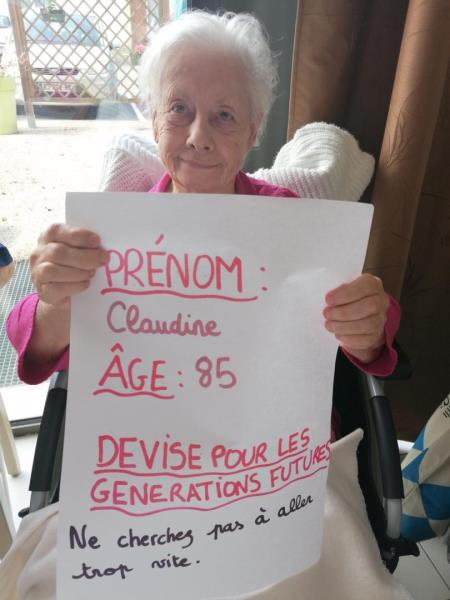 PRÉNOM :
Claudine
ÂGE : 85
DEVISE POUR LES
GENERATIONS FUTURES
Ne cherchez pas à aller
trop vite.